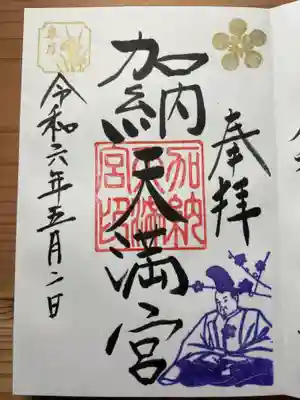 奉拝
加納天満宮
加納天満宮印
令和六年五月二日
皐月